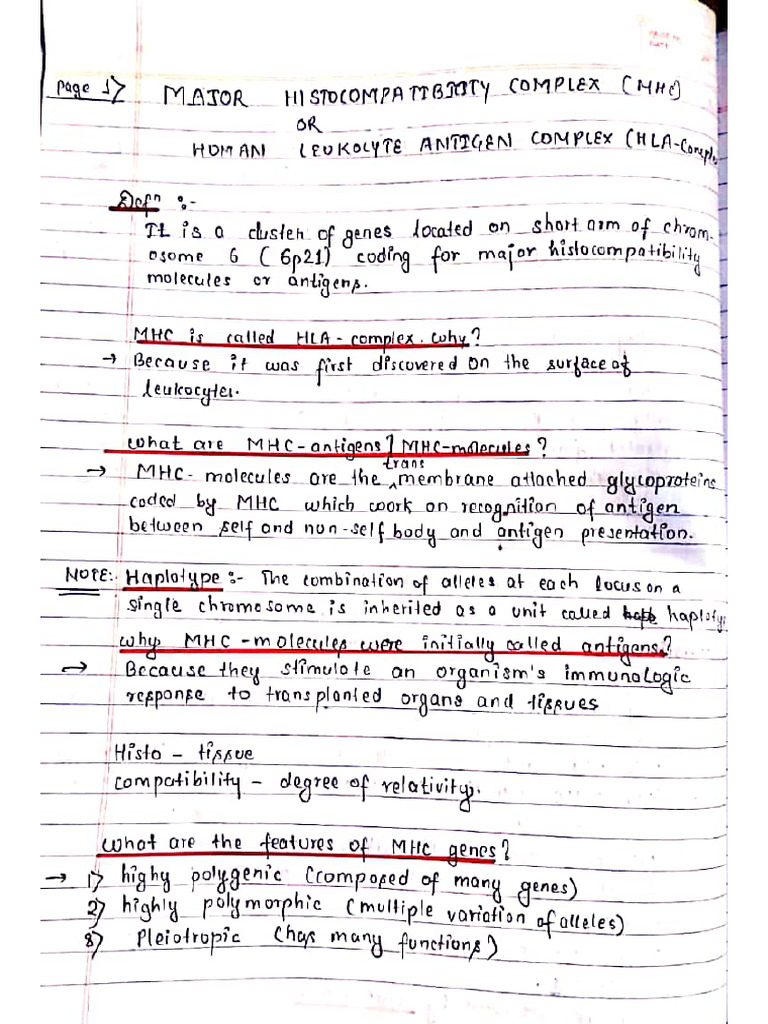 Page 1)
MAJOR HISTOCOMPATIBILITY COMPLEX (MHC)
OR
HUMAN LEUKOLYTE ANTIGEN COMPLEX (HLA-Complex
Defn :-
It is a cluster of genes located on short arm of chrom-
osome 6 (6p21) coding for major histocompatibility
molecules or antigens.
MHC is called HLA-complex. why?
→ Because it was first discovered on the surface of
leukocytes.
What are MHC-antigens] MHC-molecules?
→ MHC-molecules are the trans membrane attached glycoproteins
coded by MHC which work on recognition of antigen
between self and non-self body and antigen presentation.
NOTE:- Haplotype:- The combination of alleles at each locus on a
single chromosome is inherited as a unit called haploty
why MHC-molecules were initially called antigens?
→ Because they stimulate an organism's immunologic
response to transplanted organs and tissues
Histo - tissue
compatibility - degree of relativity.
What are the features of MHC genes?
→ 1) highy polygenic (composed of many genes)
2) highly polymorphic (multiple variation of alleles)
3) Pleiotropic (has many functions)